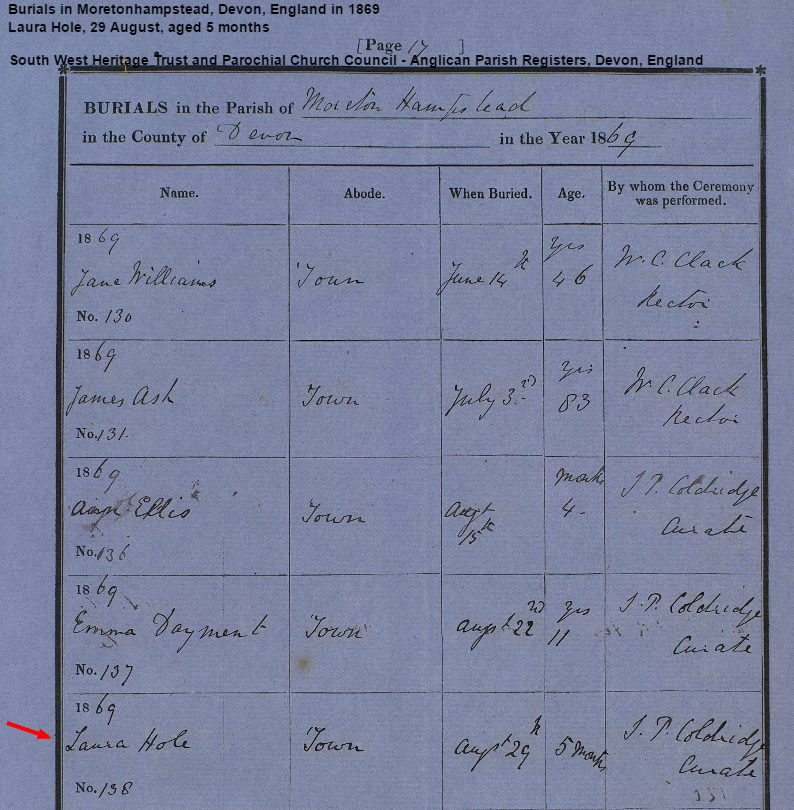 Burials in Moretonhampstead, Devon, England in 1869
Laura Hole, 29 August, aged 5 months
[Page 17 ]
South West Heritage Trust and Parochial Church Council - Anglican Parish Registers, Devon, England
BURIALS in the Parish of Moreton Hampstead
in the County of Devon in the Year 1869
Name. Abode. When Buried. Age. By whom the Ceremony was performed.
1869
Jane Williams Town June 14th yrs 46 W. C. Clack Rector
No. 130
1869
James Ash Town July 3rd yrs 83 W. C. Clack Rector
No. 131.
1869
Ellis Town Augt 15th months 4 - J. P. Coldridge Curate
No. 136
1869
Emma Dayment Town Augst 22nd yrs 11 J. P. Coldridge Curate
No. 137
1869
Laura Hole Town Augst 29th 5 months J. P. Coldridge Curate
No. 138